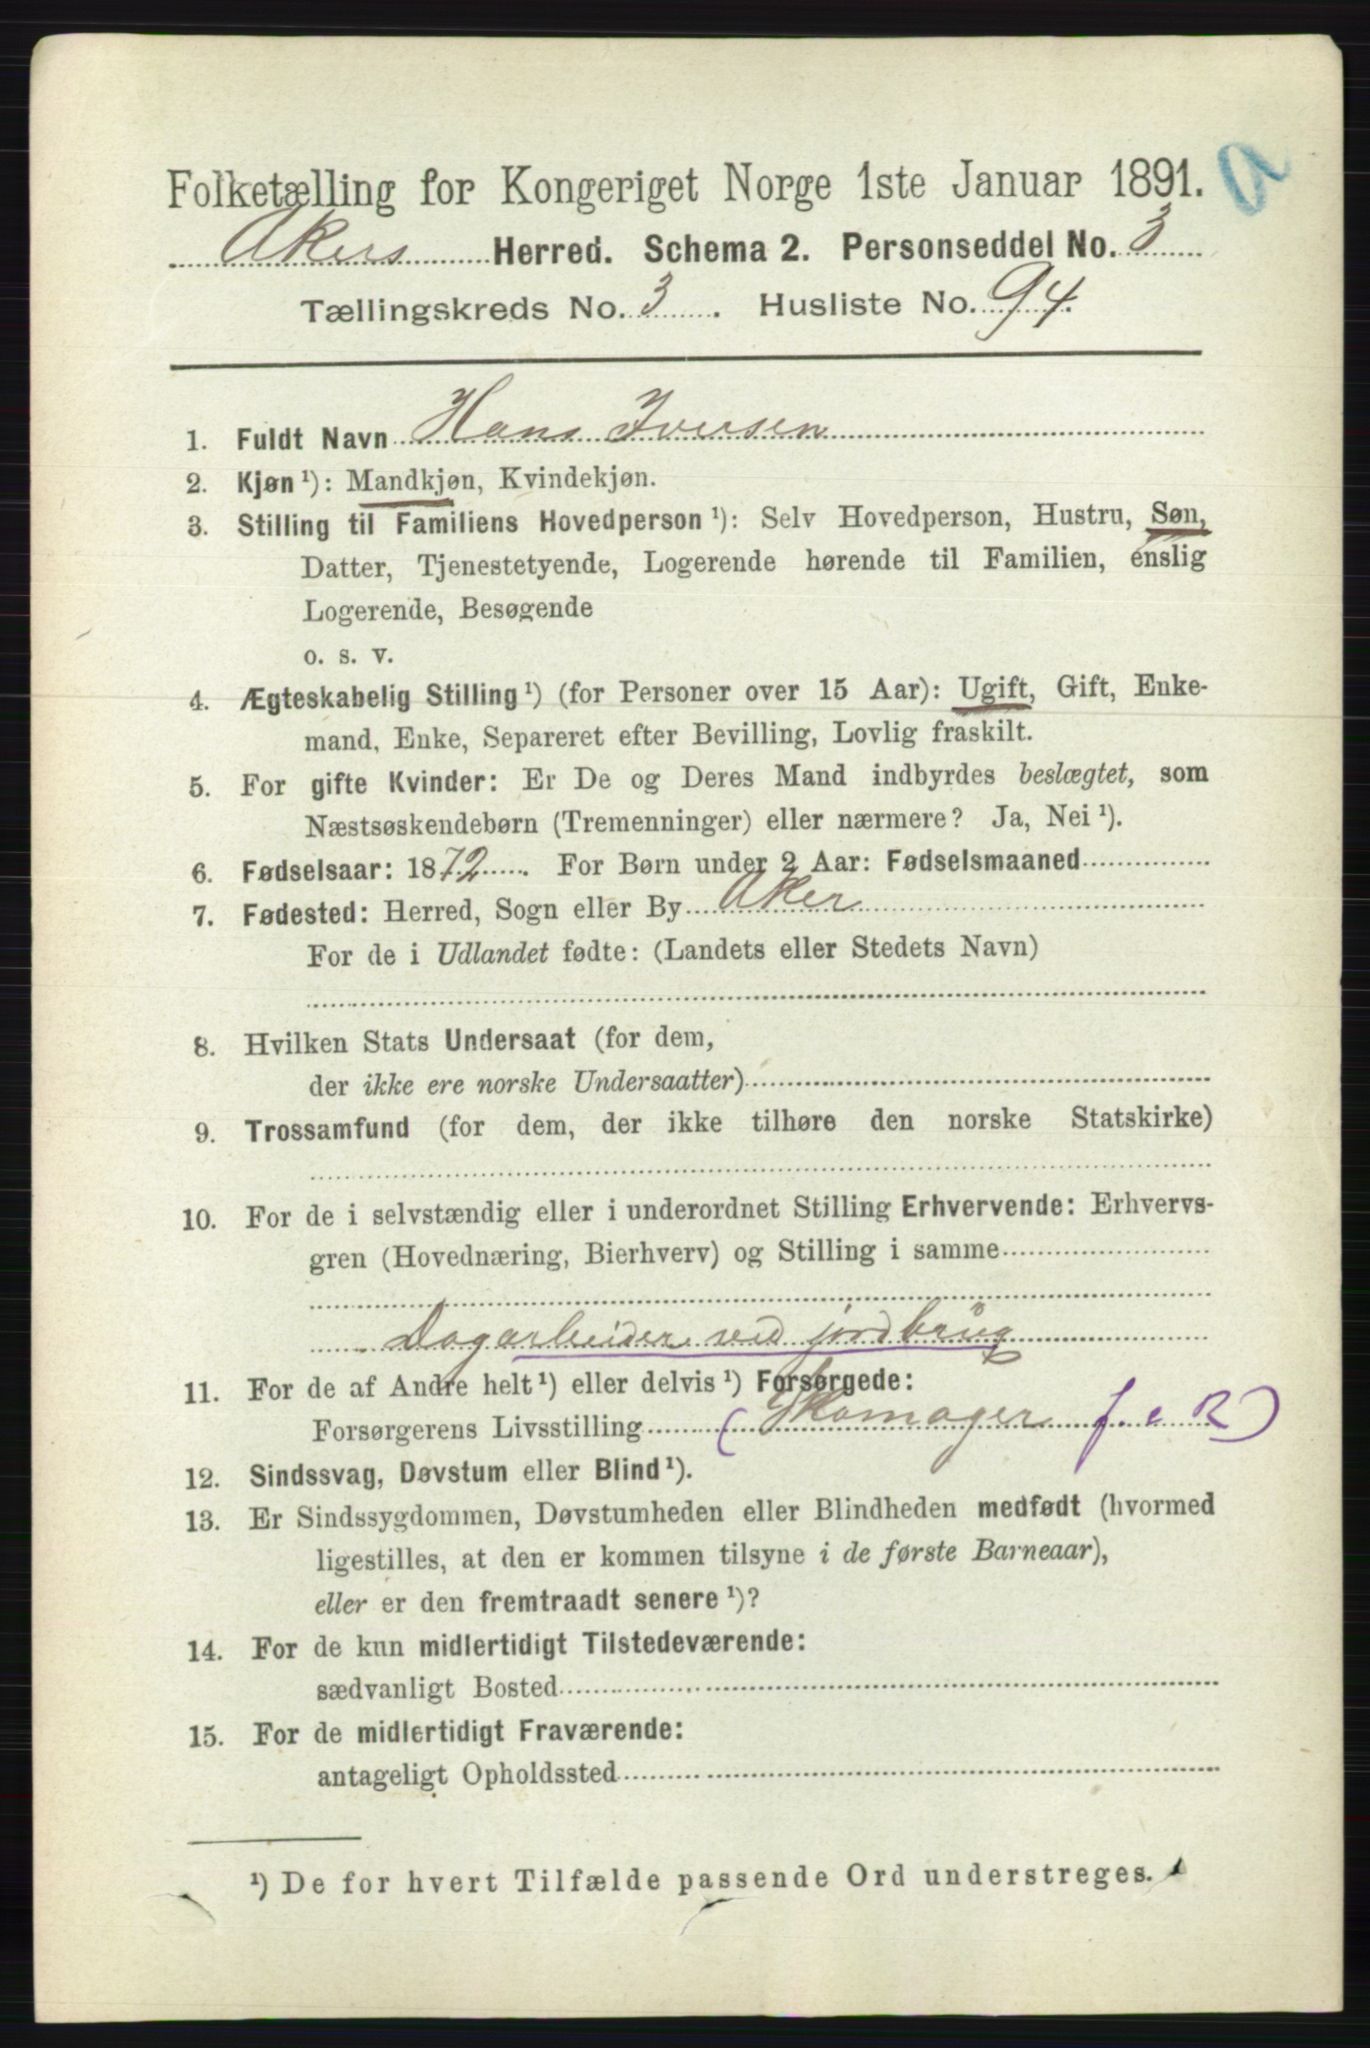 a
Folketælling for Kongeriget Norge 1ste Januar 1891.
Akers Herred. Schema 2. Personseddel No. 3
Tællingskreds No. 3. Husliste No. 94.
1. Fuldt Navn Hans Iversen
2. Kjøn ¹): Mandkjøn, Kvindekjøn.
3. Stilling til Familiens Hovedperson ¹): Selv Hovedperson, Hustru, Søn,
Datter, Tjenestetyende, Logerende hørende til Familien, enslig
Logerende, Besøgende
o. s. v.
4. Ægteskabelig Stilling ¹) (for Personer over 15 Aar): Ugift, Gift, Enke-
mand, Enke, Separeret efter Bevilling, Lovlig fraskilt.
5. For gifte Kvinder: Er De og Deres Mand indbyrdes beslægtet, som
Næstsøskendebørn (Tremenninger) eller nærmere? Ja, Nei ¹).
6. Fødselsaar: 1872. For Børn under 2 Aar: Fødselsmaaned
7. Fødested: Herred, Sogn eller By Aker
For de i Udlandet fødte: (Landets eller Stedets Navn)
8. Hvilken Stats Undersaat (for dem,
der ikke ere norske Undersaatter)
9. Trossamfund (for dem, der ikke tilhøre den norske Statskirke)
10. For de i selvstændig eller i underordnet Stilling Erhvervende: Erhvervs-
gren (Hovednæring, Bierhverv) og Stilling i samme
Dagarbeider ved jordbrug
11. For de af Andre helt ¹) eller delvis ¹) Forsørgede:
Forsørgerens Livsstilling (Skomager f. e R)
12. Sindssvag, Døvstum eller Blind ¹).
13. Er Sindssygdommen, Døvstumheden eller Blindheden medfødt (hvormed
ligestilles, at den er kommen tilsyne i de første Barneaar),
eller er den fremtraadt senere ¹)?
14. For de kun midlertidigt Tilstedeværende:
sædvanligt Bosted
15. For de midlertidigt Fraværende:
antageligt Opholdssted
¹) De for hvert Tilfælde passende Ord understreges.